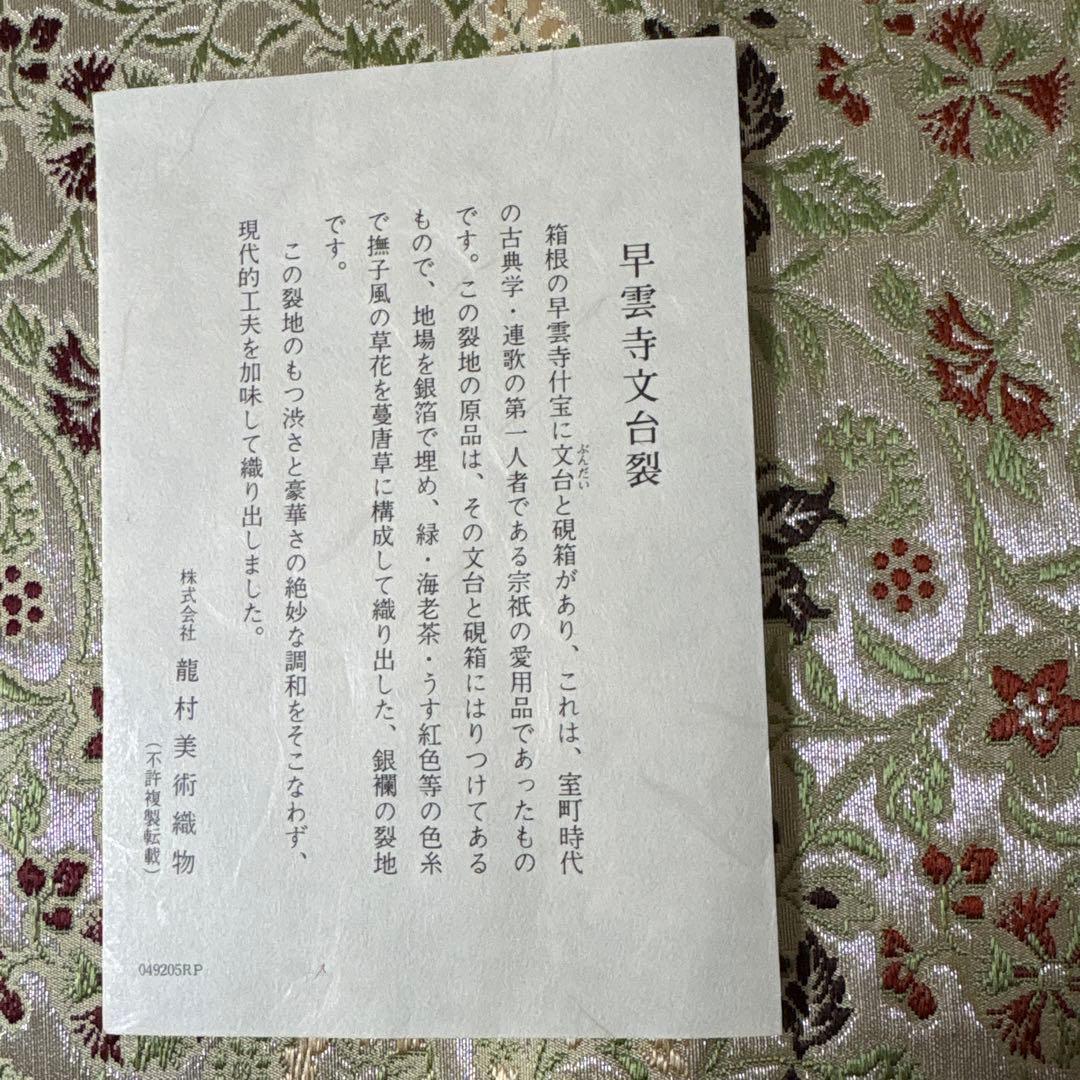 早雲寺文台裂
箱根の早雲寺什宝に文台と硯箱があり、これは、室町時代
ぶんだい
の古典学・連歌の第一人者である宗祇の愛用品であったもの
です。この裂地の原品は、その文台と硯箱にはりつけてある
もので、地場を銀箔で埋め、緑・海老茶・うす紅色等の色糸
で撫子風の草花を蔓唐草に構成して織り出した、銀襴の裂地
です。
この裂地のもつ渋さと豪華さの絶妙な調和をそこなわず、
現代的工夫を加味して織り出しました。
株式会社 龍村美術織物
(不許複製転載)
049205RP